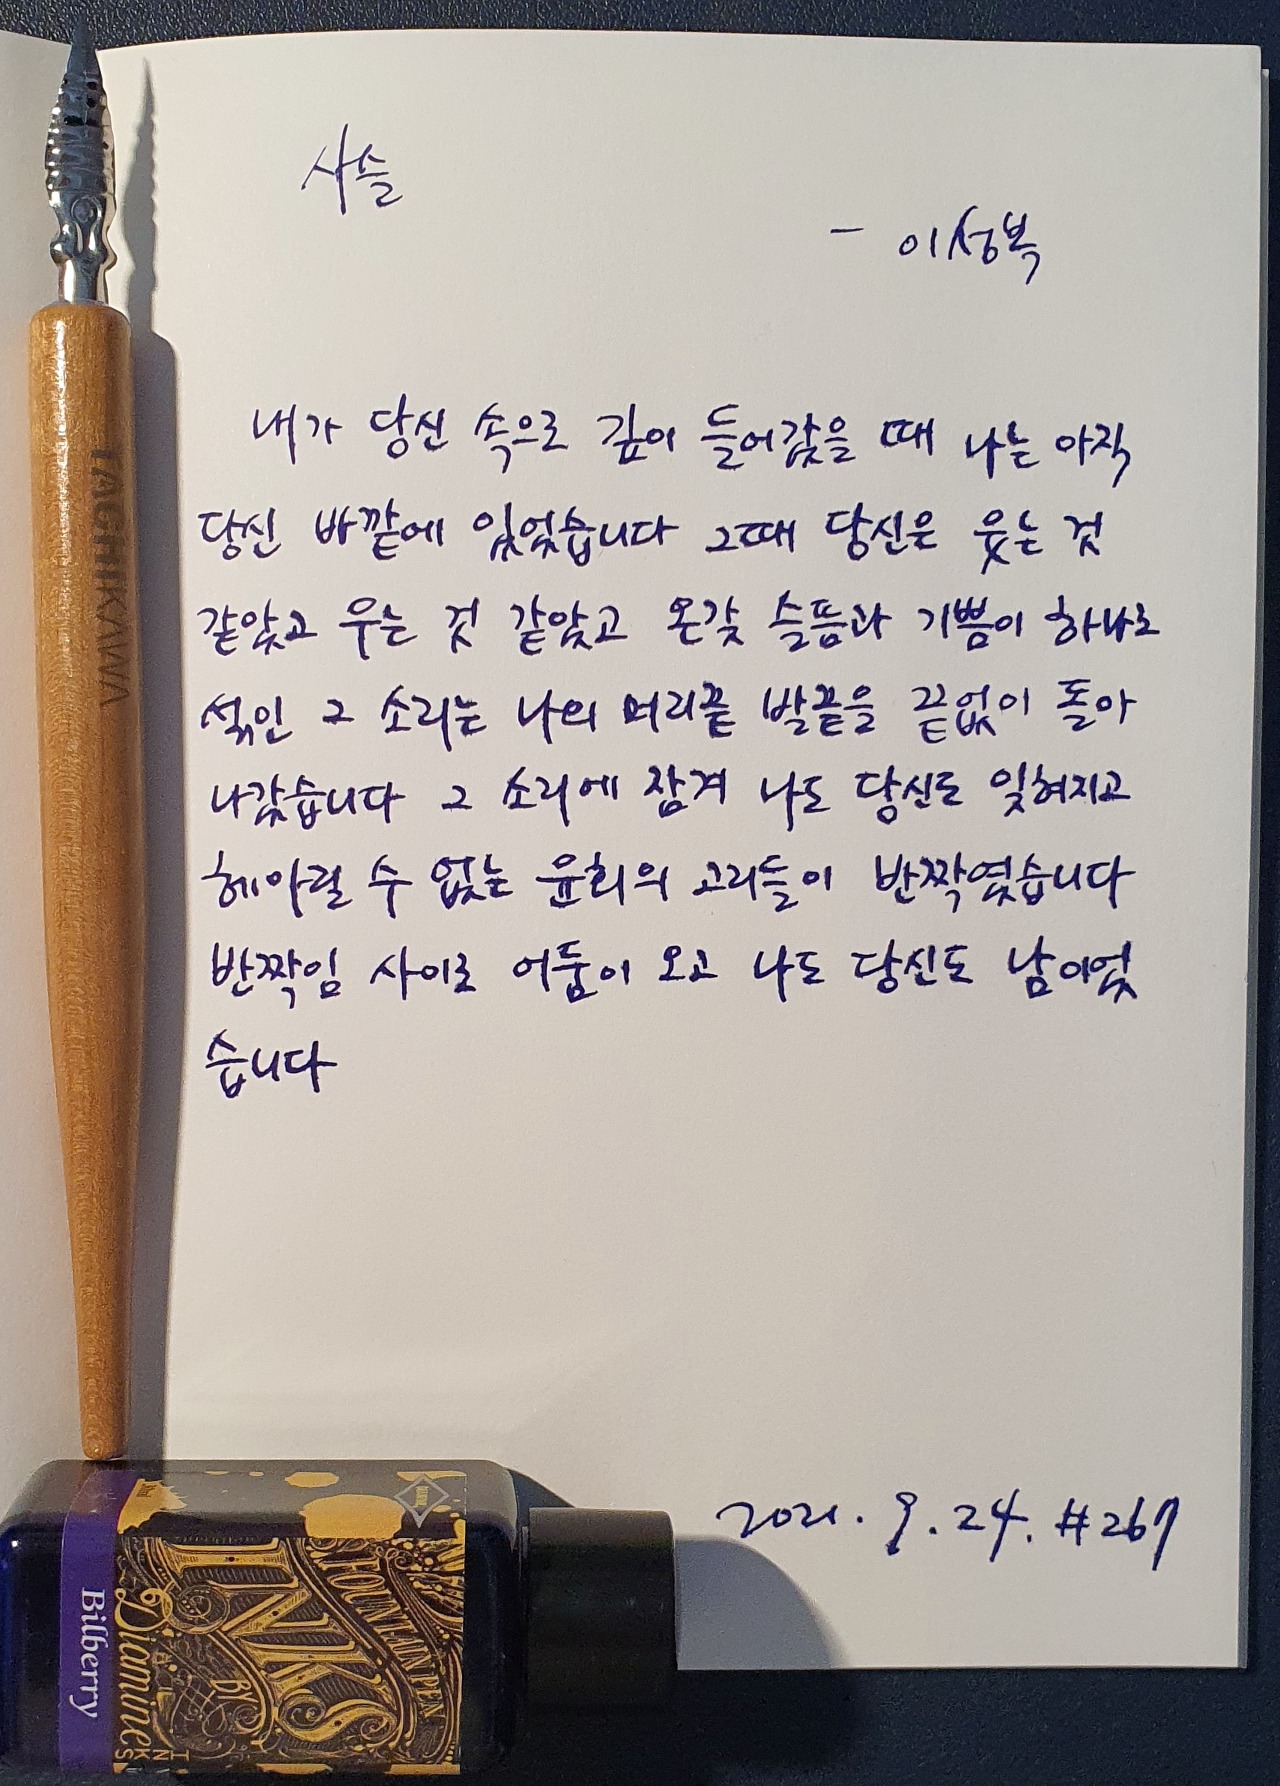 사슬
- 이성복
내가 당신 속으로 깊이 들어갔을 때 나는 아직
당신 바깥에 있었습니다 그때 당신은 웃는 것
같았고 우는 것 같았고 온갖 슬픔과 기쁨이 하나로
섞인 그 소리는 나의 머리끝 발끝을 끝없이 돌아
나갔습니다 그 소리에 잠겨 나도 당신도 잊혀지고
헤아릴 수 없는 윤회의 고리들이 반짝였습니다
반짝임 사이로 어둠이 오고 나도 당신도 남이었
습니다
2021. 9. 24. #267
TACHIKAWA
FOUNTAIN PEN
INKS
BY
Diamine
INKS
Bilberry